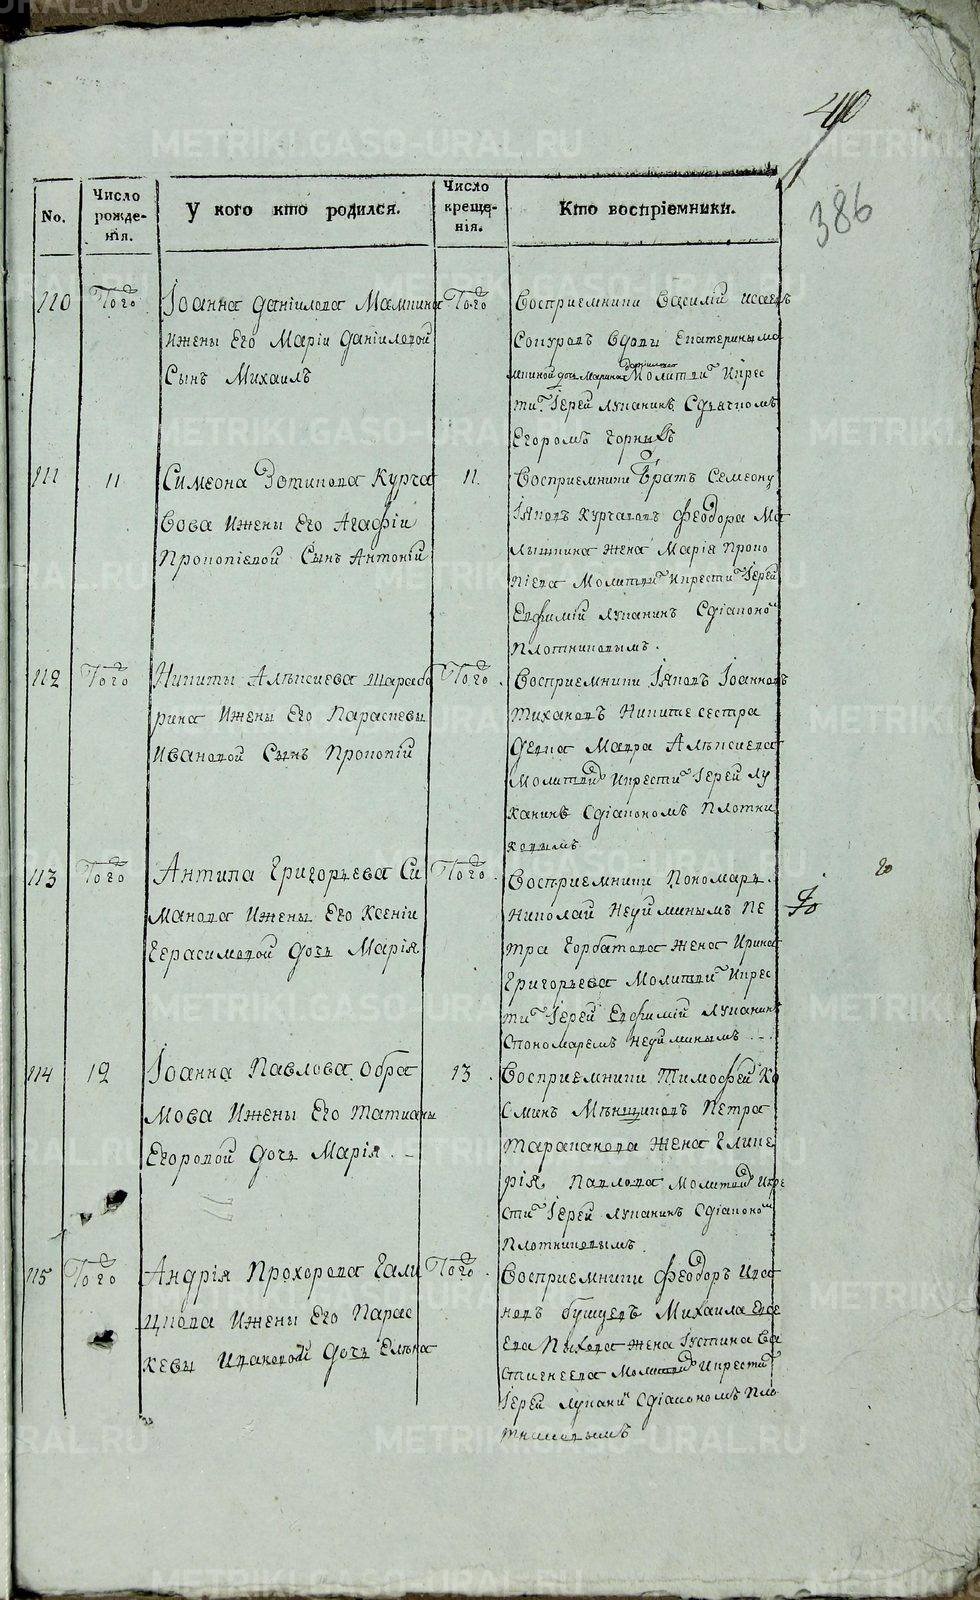 40
386
No.
Число рожде-нія.
У кого кто родился.
Число креще-нія.
Кто воспріемники.
110
Того
Іоанна Даніилова Мамкина
и жены Его Маріи Даніиловой
Сынъ Михаилъ
Того
Восприемники Василій Исаевъ
Сокуровъ вдовы Екатерины Ма
мкиной дочь Марина Молитв и крес
ти Іерей Луканинъ С дьячкомъ
Егоромъ Горныхъ
111
11
Симеона Зотикова Курча
вова и жены Его Агафіи
Прокопіевой Сынъ Антоній
11
Восприемники Братъ Семеону
Іяковъ Курчавовъ Феодора Ма
лышкина жена Марія Проко
піева Молитв и крести Іерей
Евфимій Луканинъ С діакono
Плотниковымъ.
112
Того
Никиты Алексиева Шарабо
рина и жены Его Параскевы
Ивановой Сынъ Прокопій
Того.
Восприемники Іяковъ Іоанновъ
Тихановъ Никите сестра
девка Мавра Алексиева
Молитв и крести Іерей Лу
канинъ С діакономъ Плотни
ковымъ
113
Того
Антипа Григорьева Си
манова и жены Его Ксеніи
Герасимовой дочь Марія
Того.
Восприемники Пономарь
Николай Неуйминымъ Пе
тра Горбатова жена Ирина
Григорьева Молитв и крес
ти Іерей Евфимій Луканинъ
С пономаремъ Неуйминымъ
114
12
Іоанна Павлова Обра
мова и жены Его Татианы
Егоровой дочь Марія
13
Восприемники Тимофей Ко
сминъ Меншиковъ Петра
Тараканова жена Глике
рія Павлова Молитв и кре
сти Іерей Луканинъ С діаконо
Плотниковымъ
115
Того
Андрія Прохорова Гали
цкова и жены Его Парас
кевы Ивановой дочь Елена
Того.
Восприемники Феодоръ Ива
новъ Бушуевъ Михаила Евсе
ева Пихова жена Іустина Ева
стигнеева Молитв и крести
Іерей Лукани С діакономъ Пло
тниковымъ
METRIKI.GASO-URAL.RU